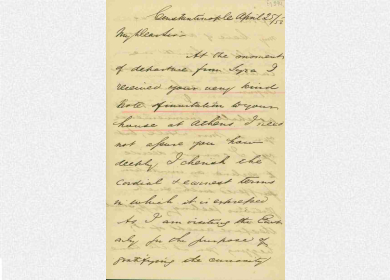 Constantinople April 25/58
My Dear Sir
At the moment
of departure from Syra I
received your very kind
note of invitation to your
house at Athens I need
not assure you how
deeply I cherish the
cordial & earnest terms
in which it is expressed
As I am visiting the East
only for the purpose of
gratifying the curiosity